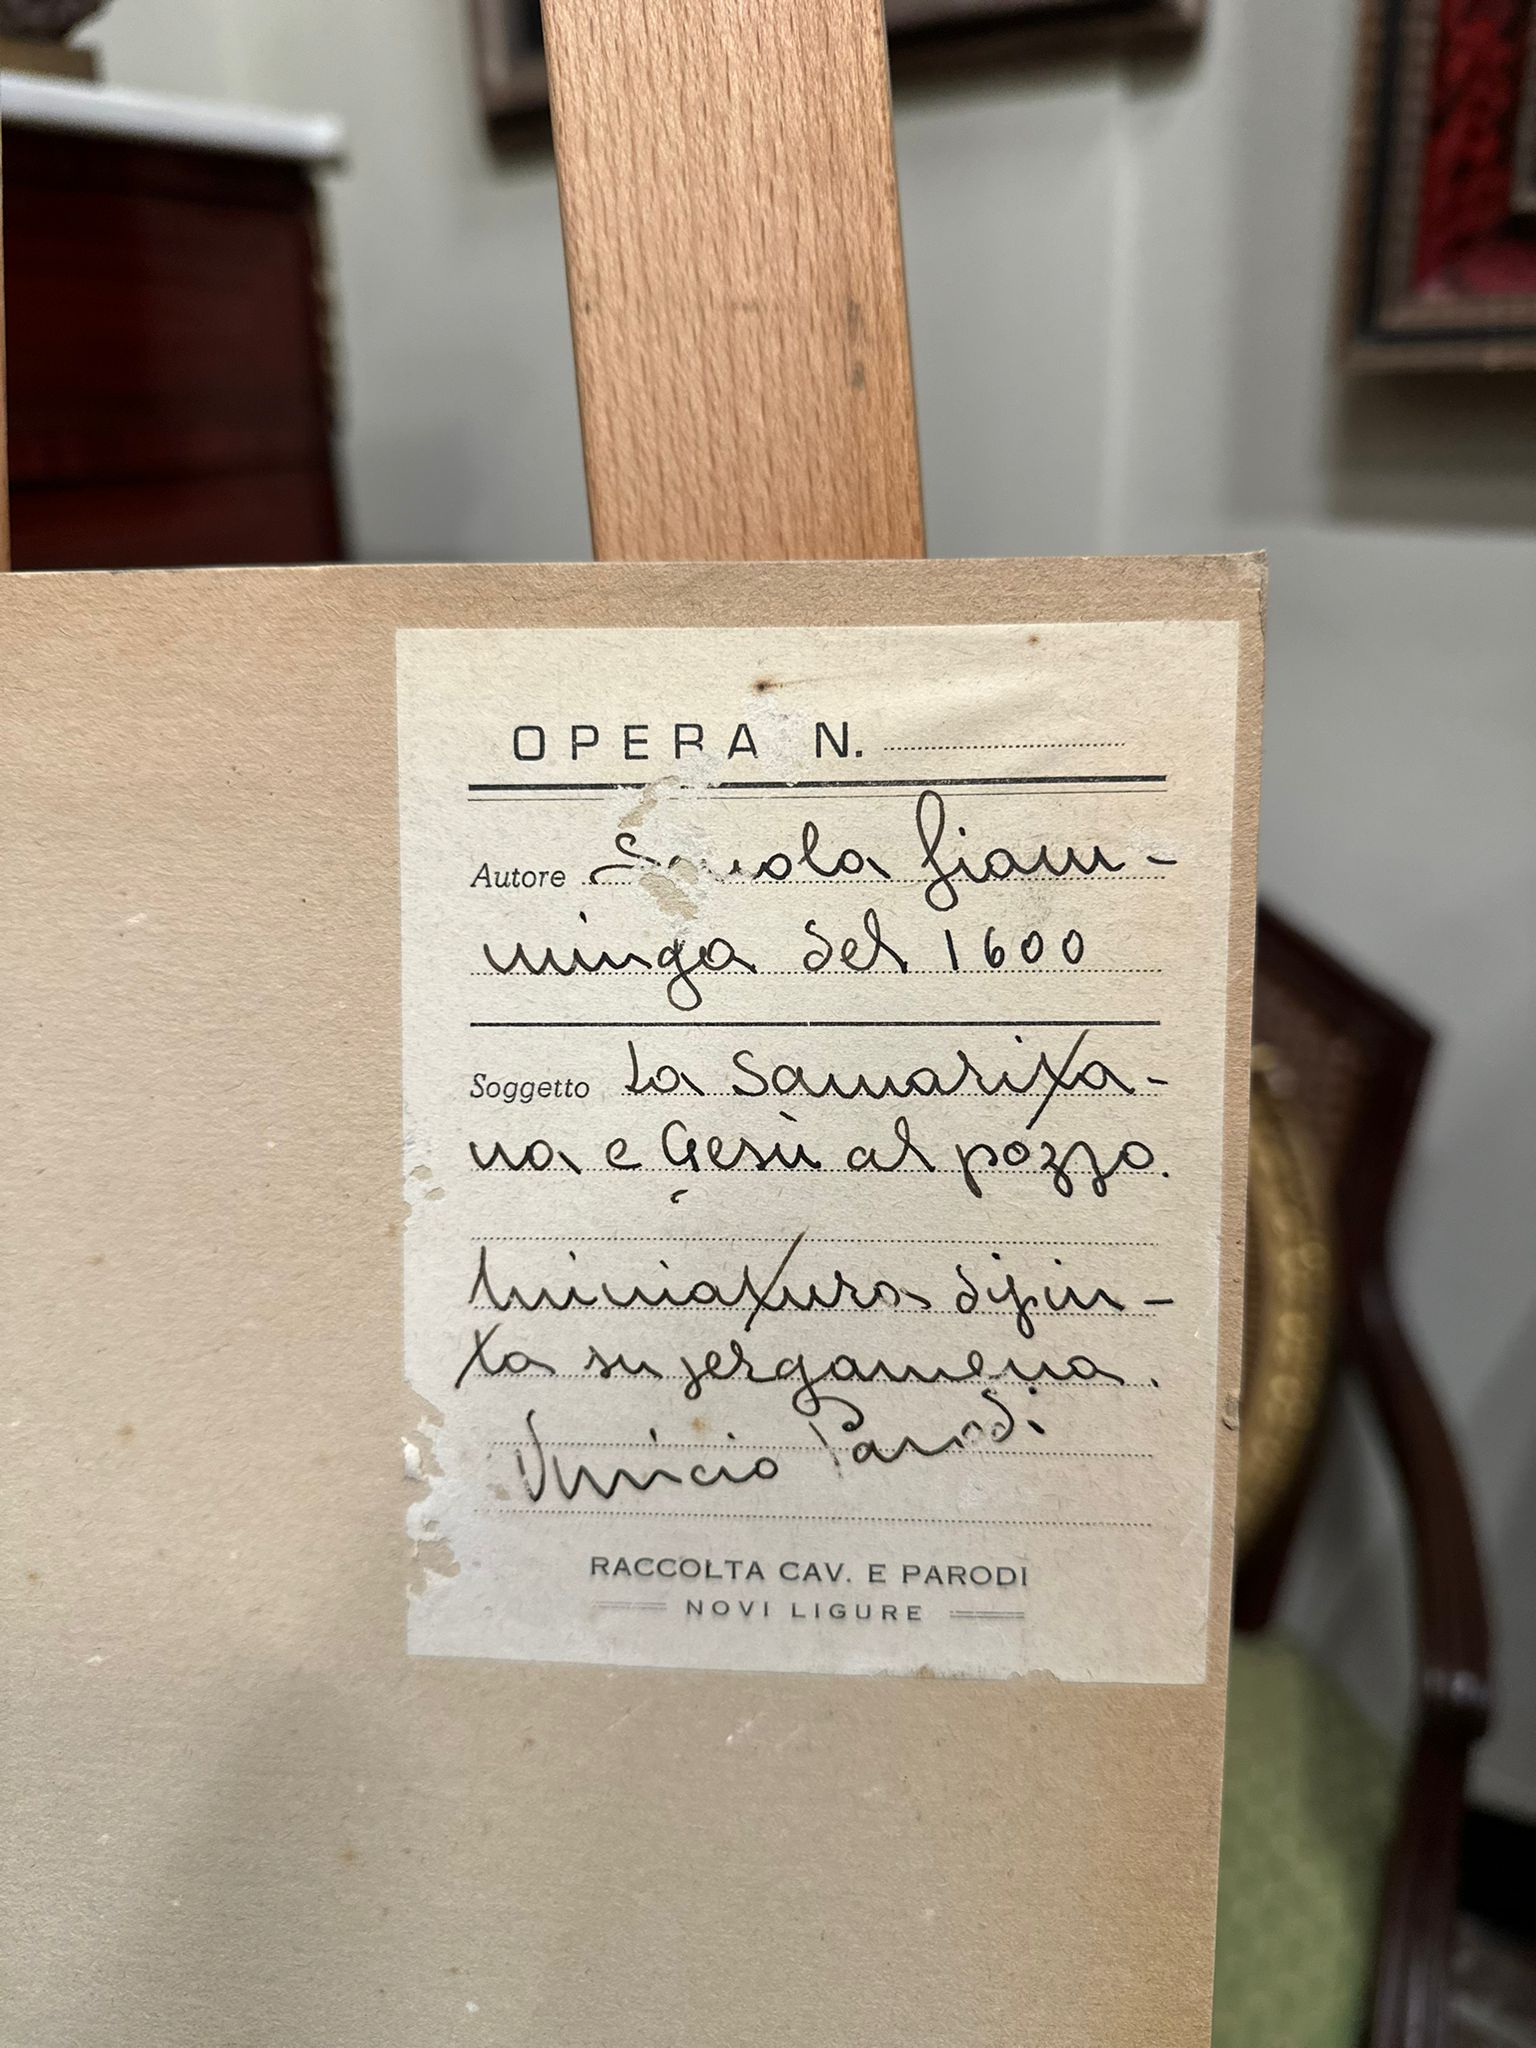 OPERA N.
Autore Scuola fiam-
minga del 1600
Soggetto La Samarita-
na e Gesù al pozzo.
Miniatura dipin-
ta su pergamena.
Vinicio Parodi
RACCOLTA CAV. E PARODI
NOVI LIGURE